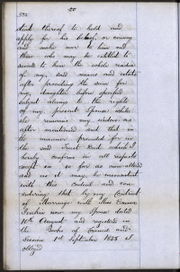 572
shall thereof to hold and
apply for his behoof or convey
and make over to him and
those who may be entitled to
succeed to him the whole residue
of my said means and estate
after providing the sum for
my daughter before specified
subject always to the right
of my present Spouse while
she remains my widow as
after mentioned and that in
manner provided for in
the said Trust Deed which I
hereby confirm in all respects
except in so far as unrevoked
and as it may be inconsistent
with this Codicil and con-
sidering that by my Contract
of Marriage with Miss
my Spouse dated
and registered in
the Books of Council and
Session 1st September 1855 I